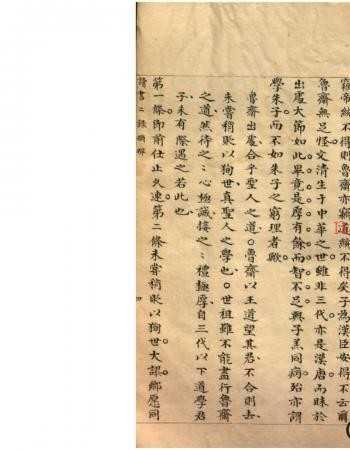 窮帝統不得則魯齋亦顧道統不得矣子為漢臣安得不云爾
魯齋無足怪文清生于中華之世雖非三代亦是漢唐而昧於
出處大節如此畢竟是厚有餘而智不足與子羔同病殆亦謂
學朱子而不如朱子之窮理者歟
魯齋出處合乎聖人之道○魯齋以王道望其君不合則去
未嘗稍貶以狥世真聖人之學也○世祖雖不能盡行魯齋
之道然待之之心極誠接之之禮極厚自三代以下道學君
子未有際遇之若此也
第一條即前仕止久速第二條未嘗稍貶以狥世大謬鄉愿同
讀書二錄
四